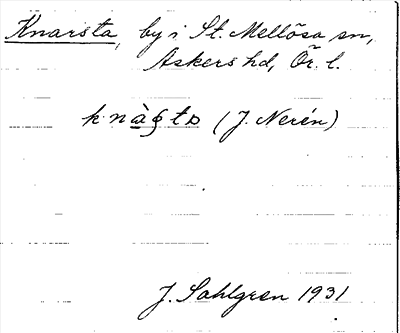 Knarsta, by i St. Mellösa sn,
Askers hd, Ör. l.
(J. Nerén)
J. Sahlgren 1931